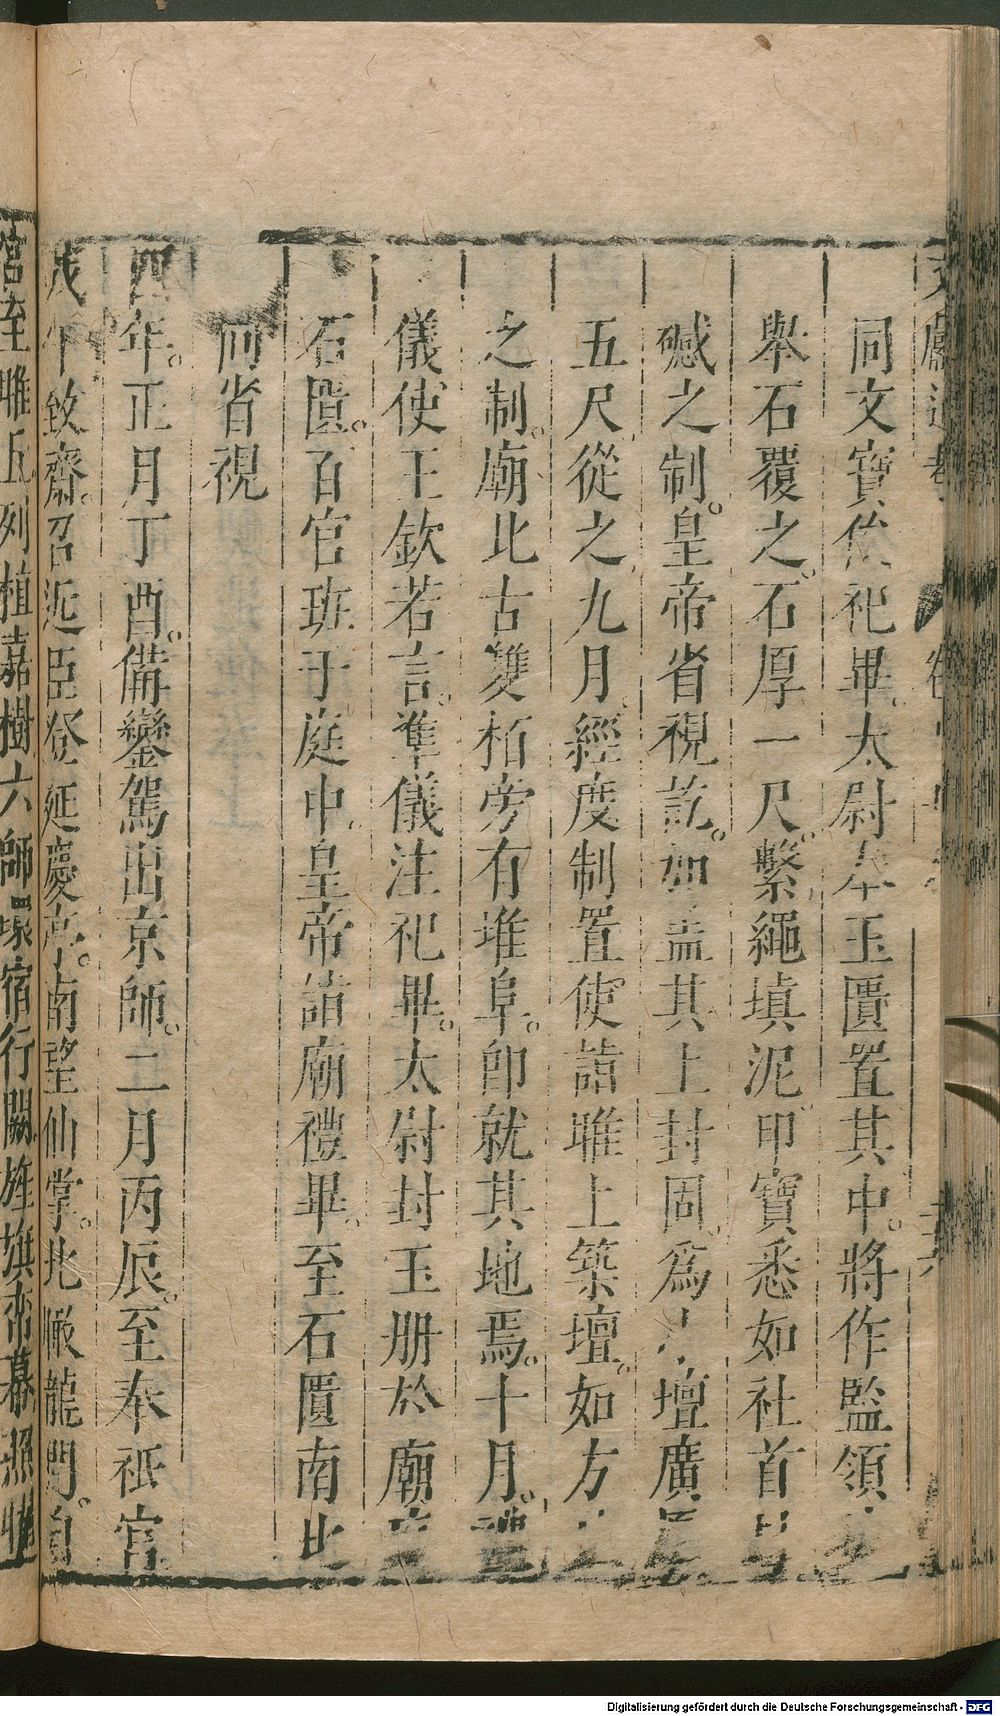 文獻通考
同文寶俟祀畢太尉奉玉匱置其中將作監領
舉石覆之石厚一尺繫繩填泥印寶悉如社首
憾之制皇帝省視訖加盖其上封固爲小壇廣
五尺從之九月經度制置使詣脽上築壇如方
之制廟北古雙栢旁有堆阜卽就其地焉十月
儀使王欽若言準儀注祀畢太尉封玉册於廟
石匱百官班于庭中皇帝詣廟禮畢至石匱南北
向省視
四年正月丁酉備鑾駕出京師二月丙辰至奉祇宮
戊午致齋召近臣登延慶亭南望仙掌北瞰龍門自
宮至脽丘列植嘉樹六師環宿行闕旌旗帟幕照
Digitalisierung gefördert durch die Deutsche Forschungsgemeinschaft - DFG